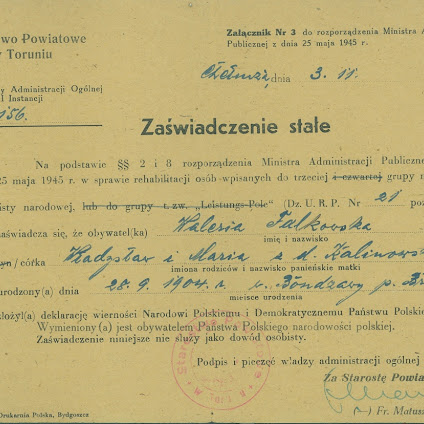 wo Powiatowe
Toruniu
Załącznik Nr 3 do rozporządzenia Ministra A
Publicznej z dnia 25 maja 1945 r.
y Administracji Ogólnej
I Instancji
156.
Chełmża, dnia 3. 11.
Zaświadczenie stałe
Na podstawie §§ 2 i 8 rozporządzenia Ministra Administracji Publiczne
25 maja 1945 r. w sprawie rehabilitacji osób wpisanych do trzeciej i czwartej grupy n
isty narodowej, lub do grupy t. zw. „Leistungs-Pole" (Dz. U. R. P. Nr 21 poz
aświadcza się, że obywatel(ka) Waleria Falkowska
imię i nazwisko
yn / córka Władysław i Maria z d. Kalinows
imiona rodziców i nazwisko panieńskie matki
urodzony(a) dnia 28. 9. 1904. r. w. p.
miejsce urodzenia
łożył(a) deklarację wierności Narodowi Polskiemu i Demokratycznemu Państwu Polski
Wymieniony(a) jest obywatelem Państwa Polskiego narodowości polskiej.
Zaświadczenie niniejsze nie służy jako dowód osobisty.
Podpis i pieczęć władzy administracji ogólnej
Za Starostę Powia
(—) Fr. Matus
Drukarnia Polska, Bydgoszcz